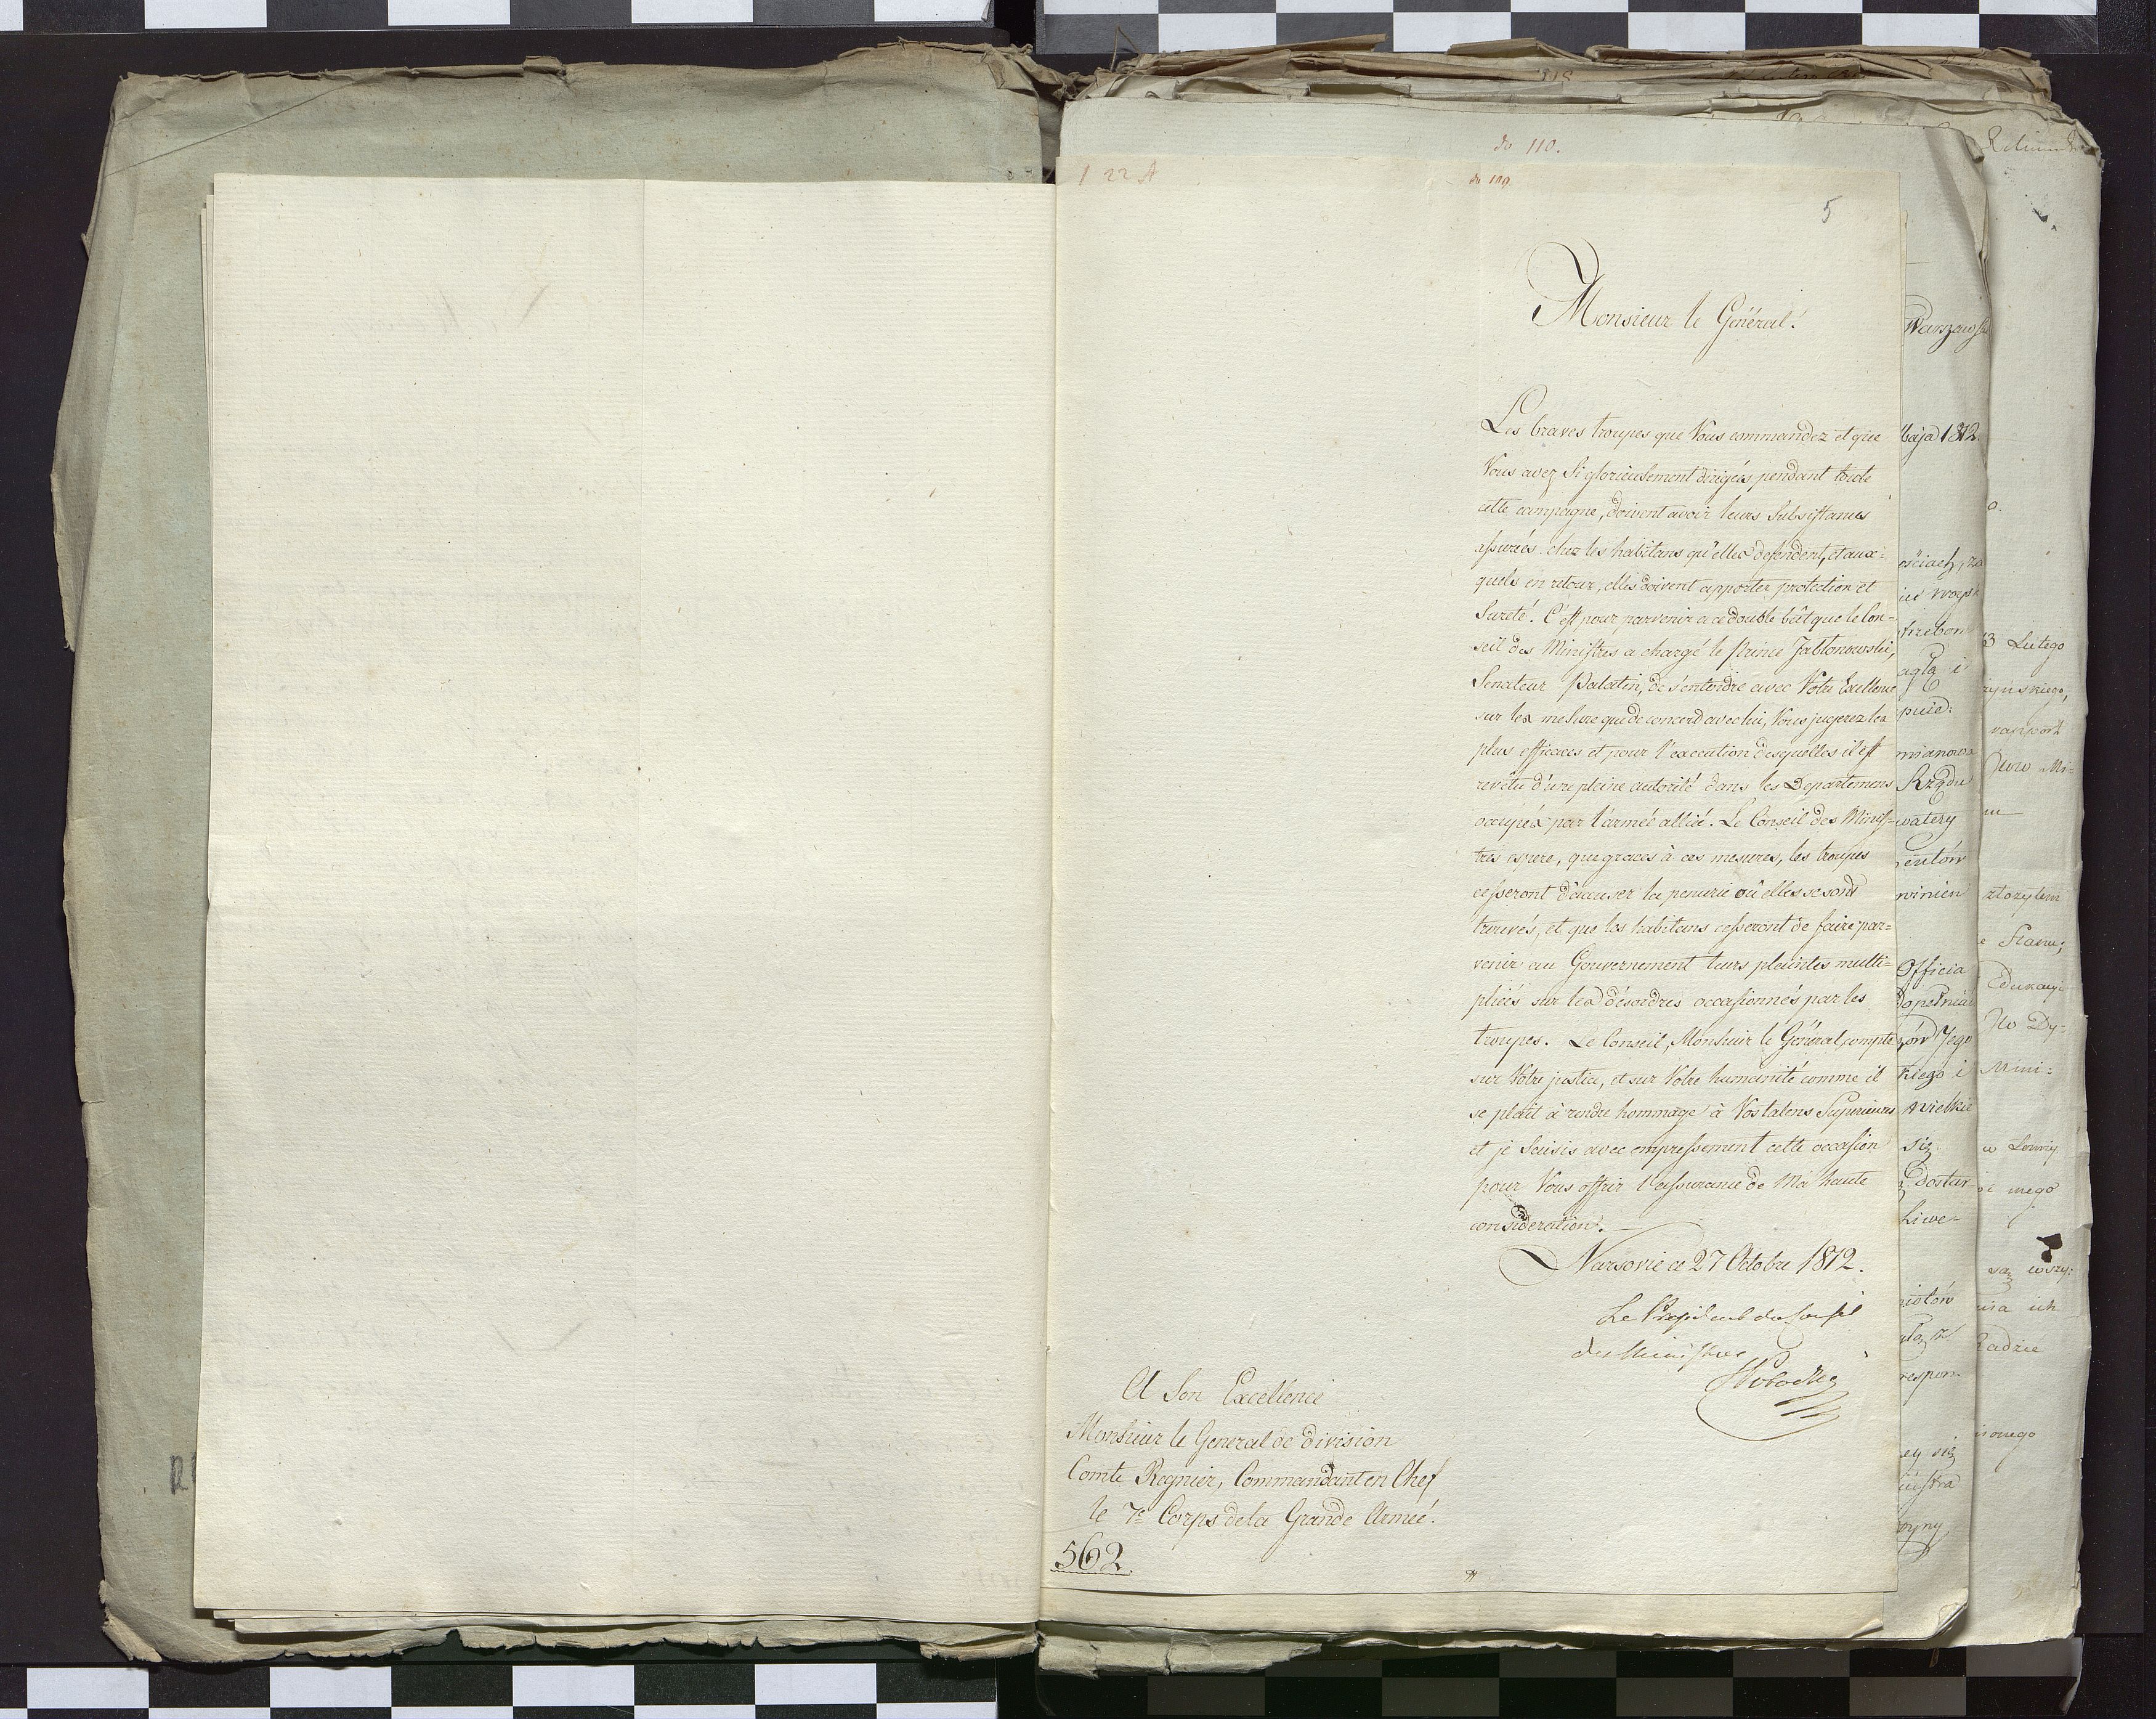 do 110.
122 A
do 109.
5
Monsieur le Général!
Les braves troupes que Vous commandez et que
Vous avez si glorieusement dirigées pendant toute
cette campagne, doivent avoir leurs subsistances
assurées chez les habitans qu'elles defendent, et aux=
quels en retour, elles doivent apporter protection et
sureté. C'est pour parvenir a ce double bût que le Con=
seil des Ministres a chargé le Prince Jablonowski,
Senateur Palatin, de s'entendre avec Votre Excellence
sur les mesure que de concerd avec lui, Vous jugerez les
plus efficaces et pour l'execution desquelles il est
revêtu d'une pleine autorité dans les Departemens
occupés par l'armée alliée. Le Conseil des Minis=
tres espere, que graces à ces mesures, les troupes
cesseront d'accuser la penurie où elles se sont
trouvés, et que les habitans cesseront de faire par=
venir au Gouvernement leurs plaintes multi=
pliées sur les désordres occasionnés par les
troupes. Le Conseil, Monsieur le Général, compte
sur Votre justice, et sur Votre humanité comme il
se plait à rendre hommage à Vos talens Superieurs
et je saisis avec empressement cette occasion
pour Vous offrir l'assurance de Ma haute
consideration.
Varsovie ce 27 Octobre 1812.
Le President du Conseil
des Ministres
A Son Excellence
Monsieur le General de division
Comte Regnier, Commandant en Chef
le 7e Corps de la Grande Armée.
562.
Warszaws
Maja 1812.
ościach, za
agłą i
mianowa
Rządu
entów
winien
Officia
dopełnia
Jego
kiego i
wielkie
się
dostar
respon
ey się
3 Lutego
ryńskiego,
rapport
złożyłem
e Stanu;
Edukacyi
No Dy=
Mini=
są wszy=
nia ich
Radzie